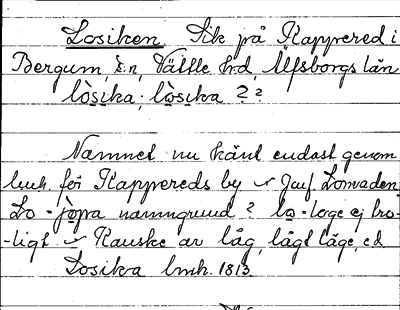 Losiken. Sik på Kappered i
Bergum, sn, Vättle hd, Älfsborgs län
lòsika; lòsika ? ?
Namnet nu känt endast genom
lmk. för Kappereds by - Jmf. Lomaden
Lo - jòpa namngrund ? lo - loge ej tro-
-ligt. - Kanske av låg, lågt läge, ed.
Losikra lmk. 1813